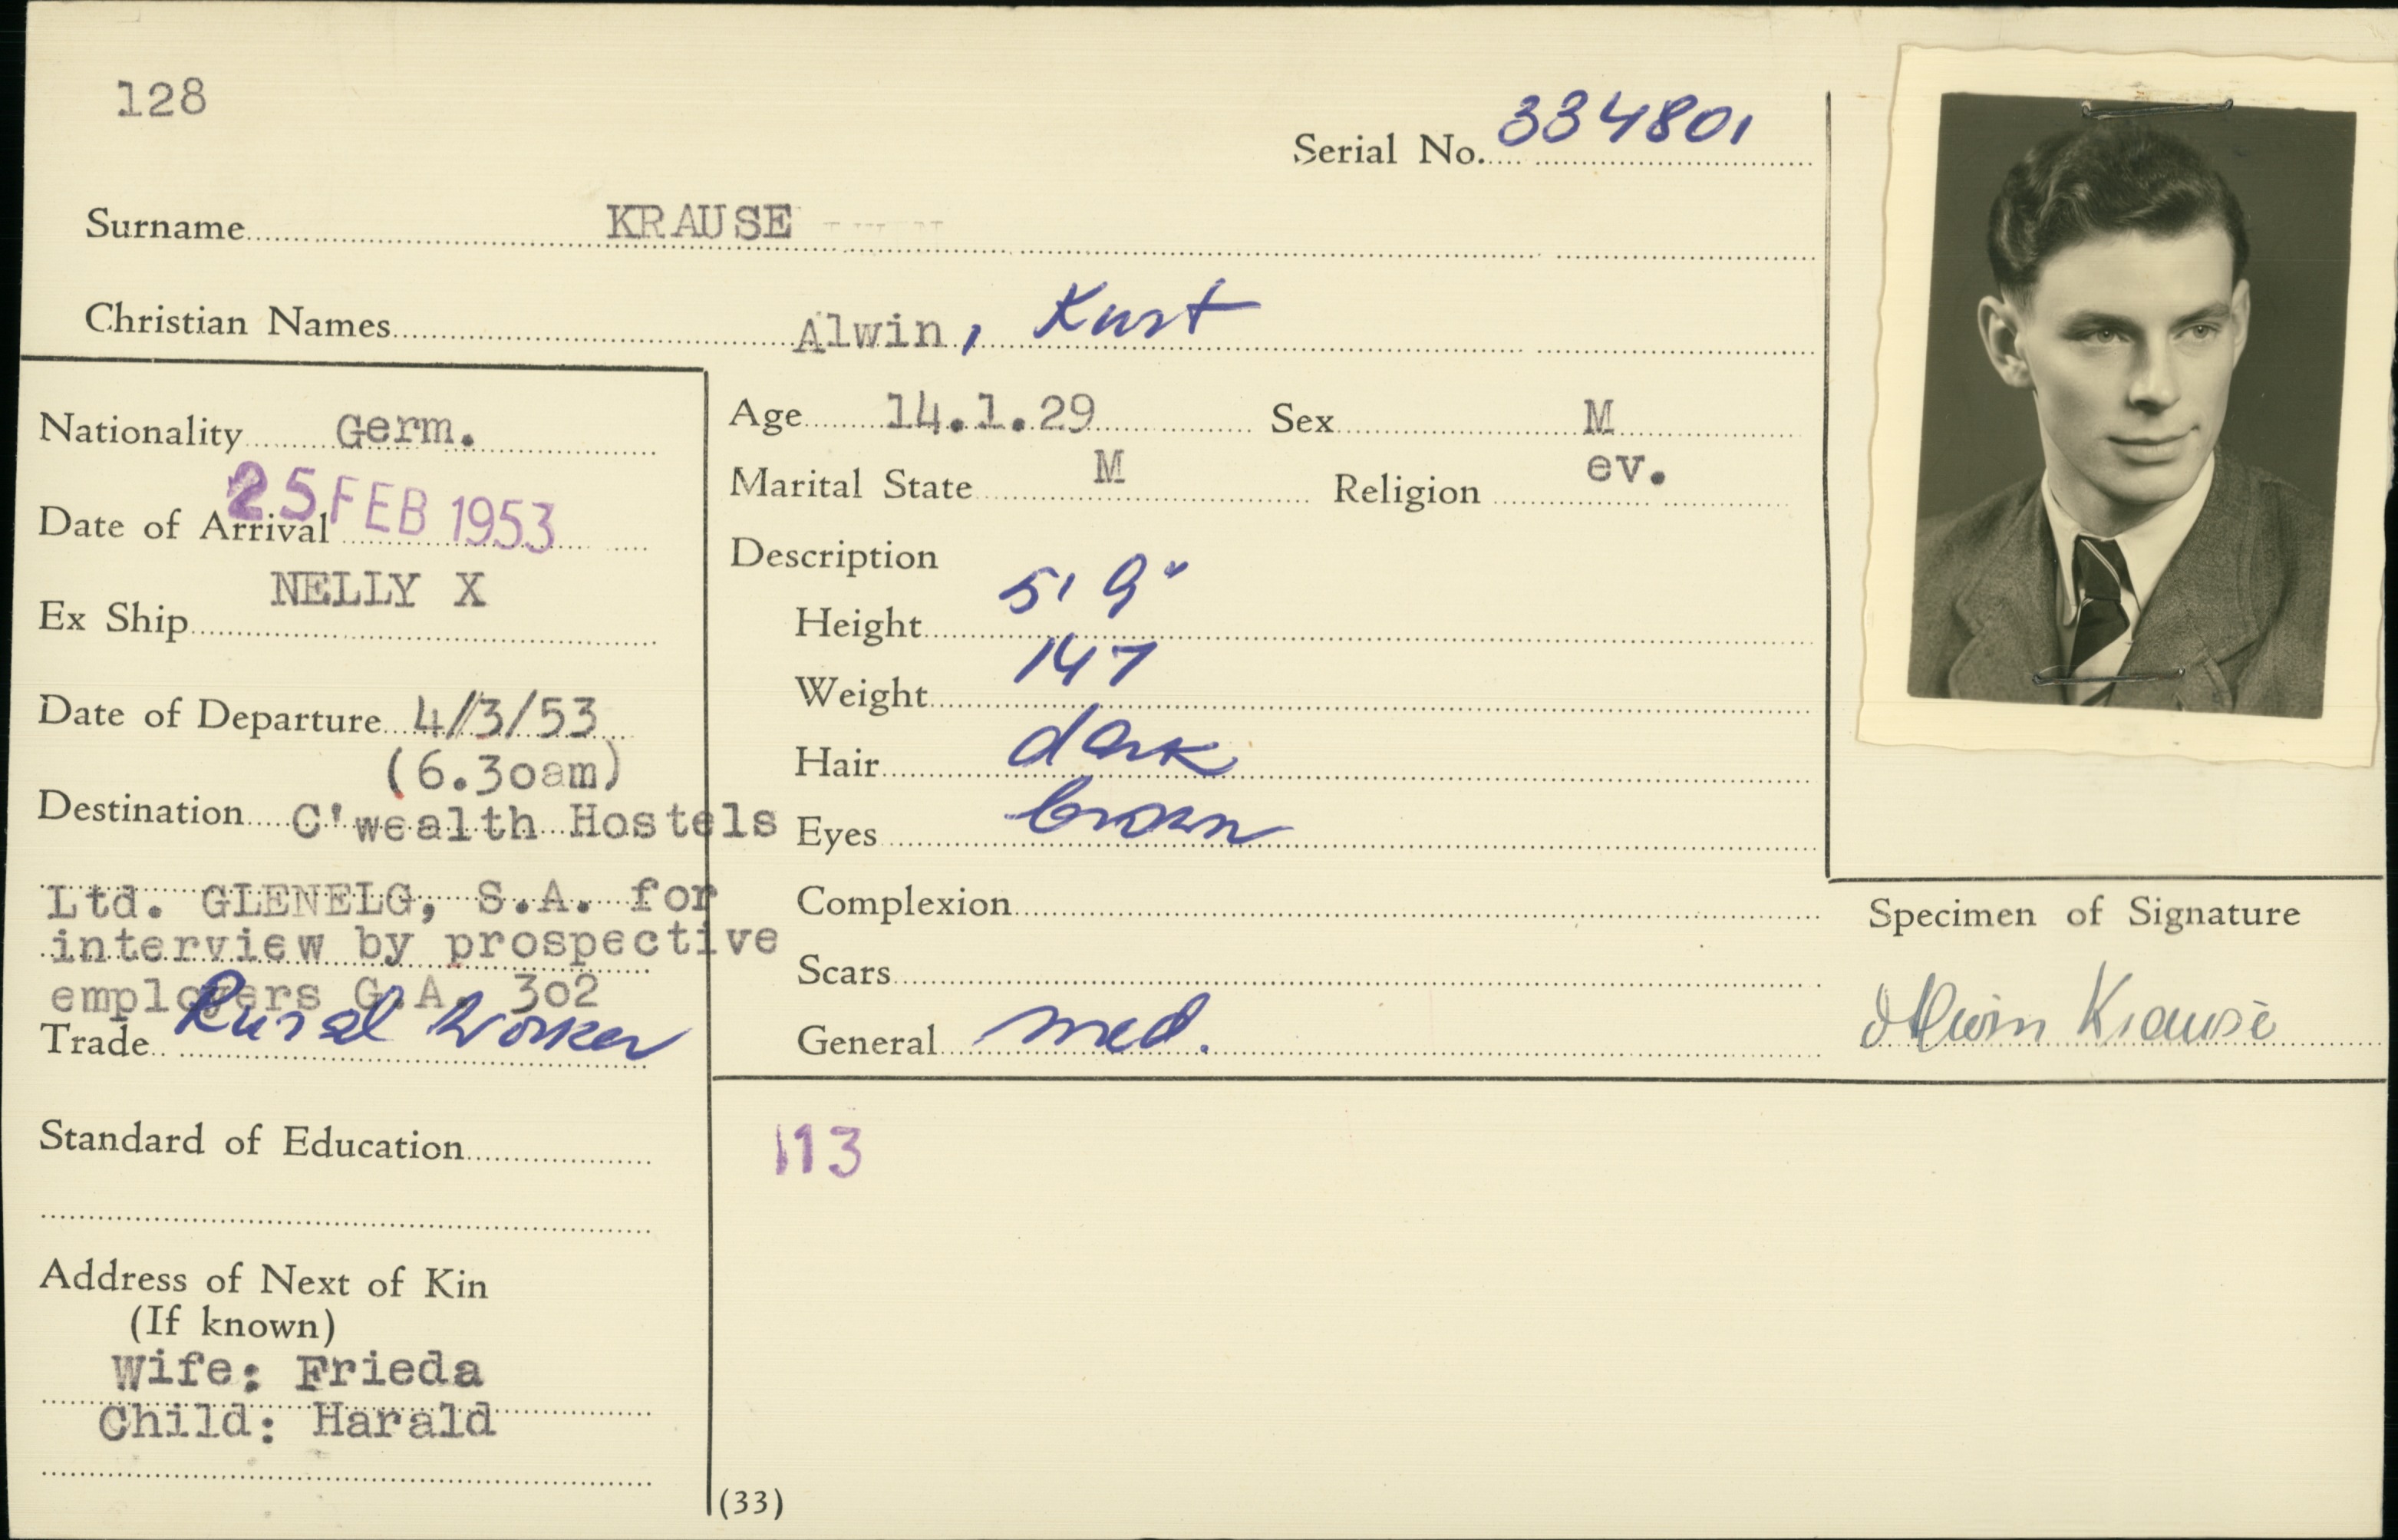 128
Serial No. 334801
Surname KRAUSE
Christian Names Alwin, Kurt
Nationality Germ.
Date of Arrival 25 FEB 1953
Ex Ship NELLY X
Date of Departure 4/3/53
(6.30am)
Destination C'wealth Hostels
Ltd. GLENELG, S.A. for
interview by prospective
employers G.A. 302
Trade Rural Worker
Standard of Education
Address of Next of Kin
(If known)
Wife: Frieda
Child: Harald
Age 14.1.29 Sex M
Marital State M Religion ev.
Description
Height 5' 9"
Weight 147
Hair dark
Eyes brown
Complexion
Scars
General med.
Specimen of Signature
Alwin Krause
113
(33)